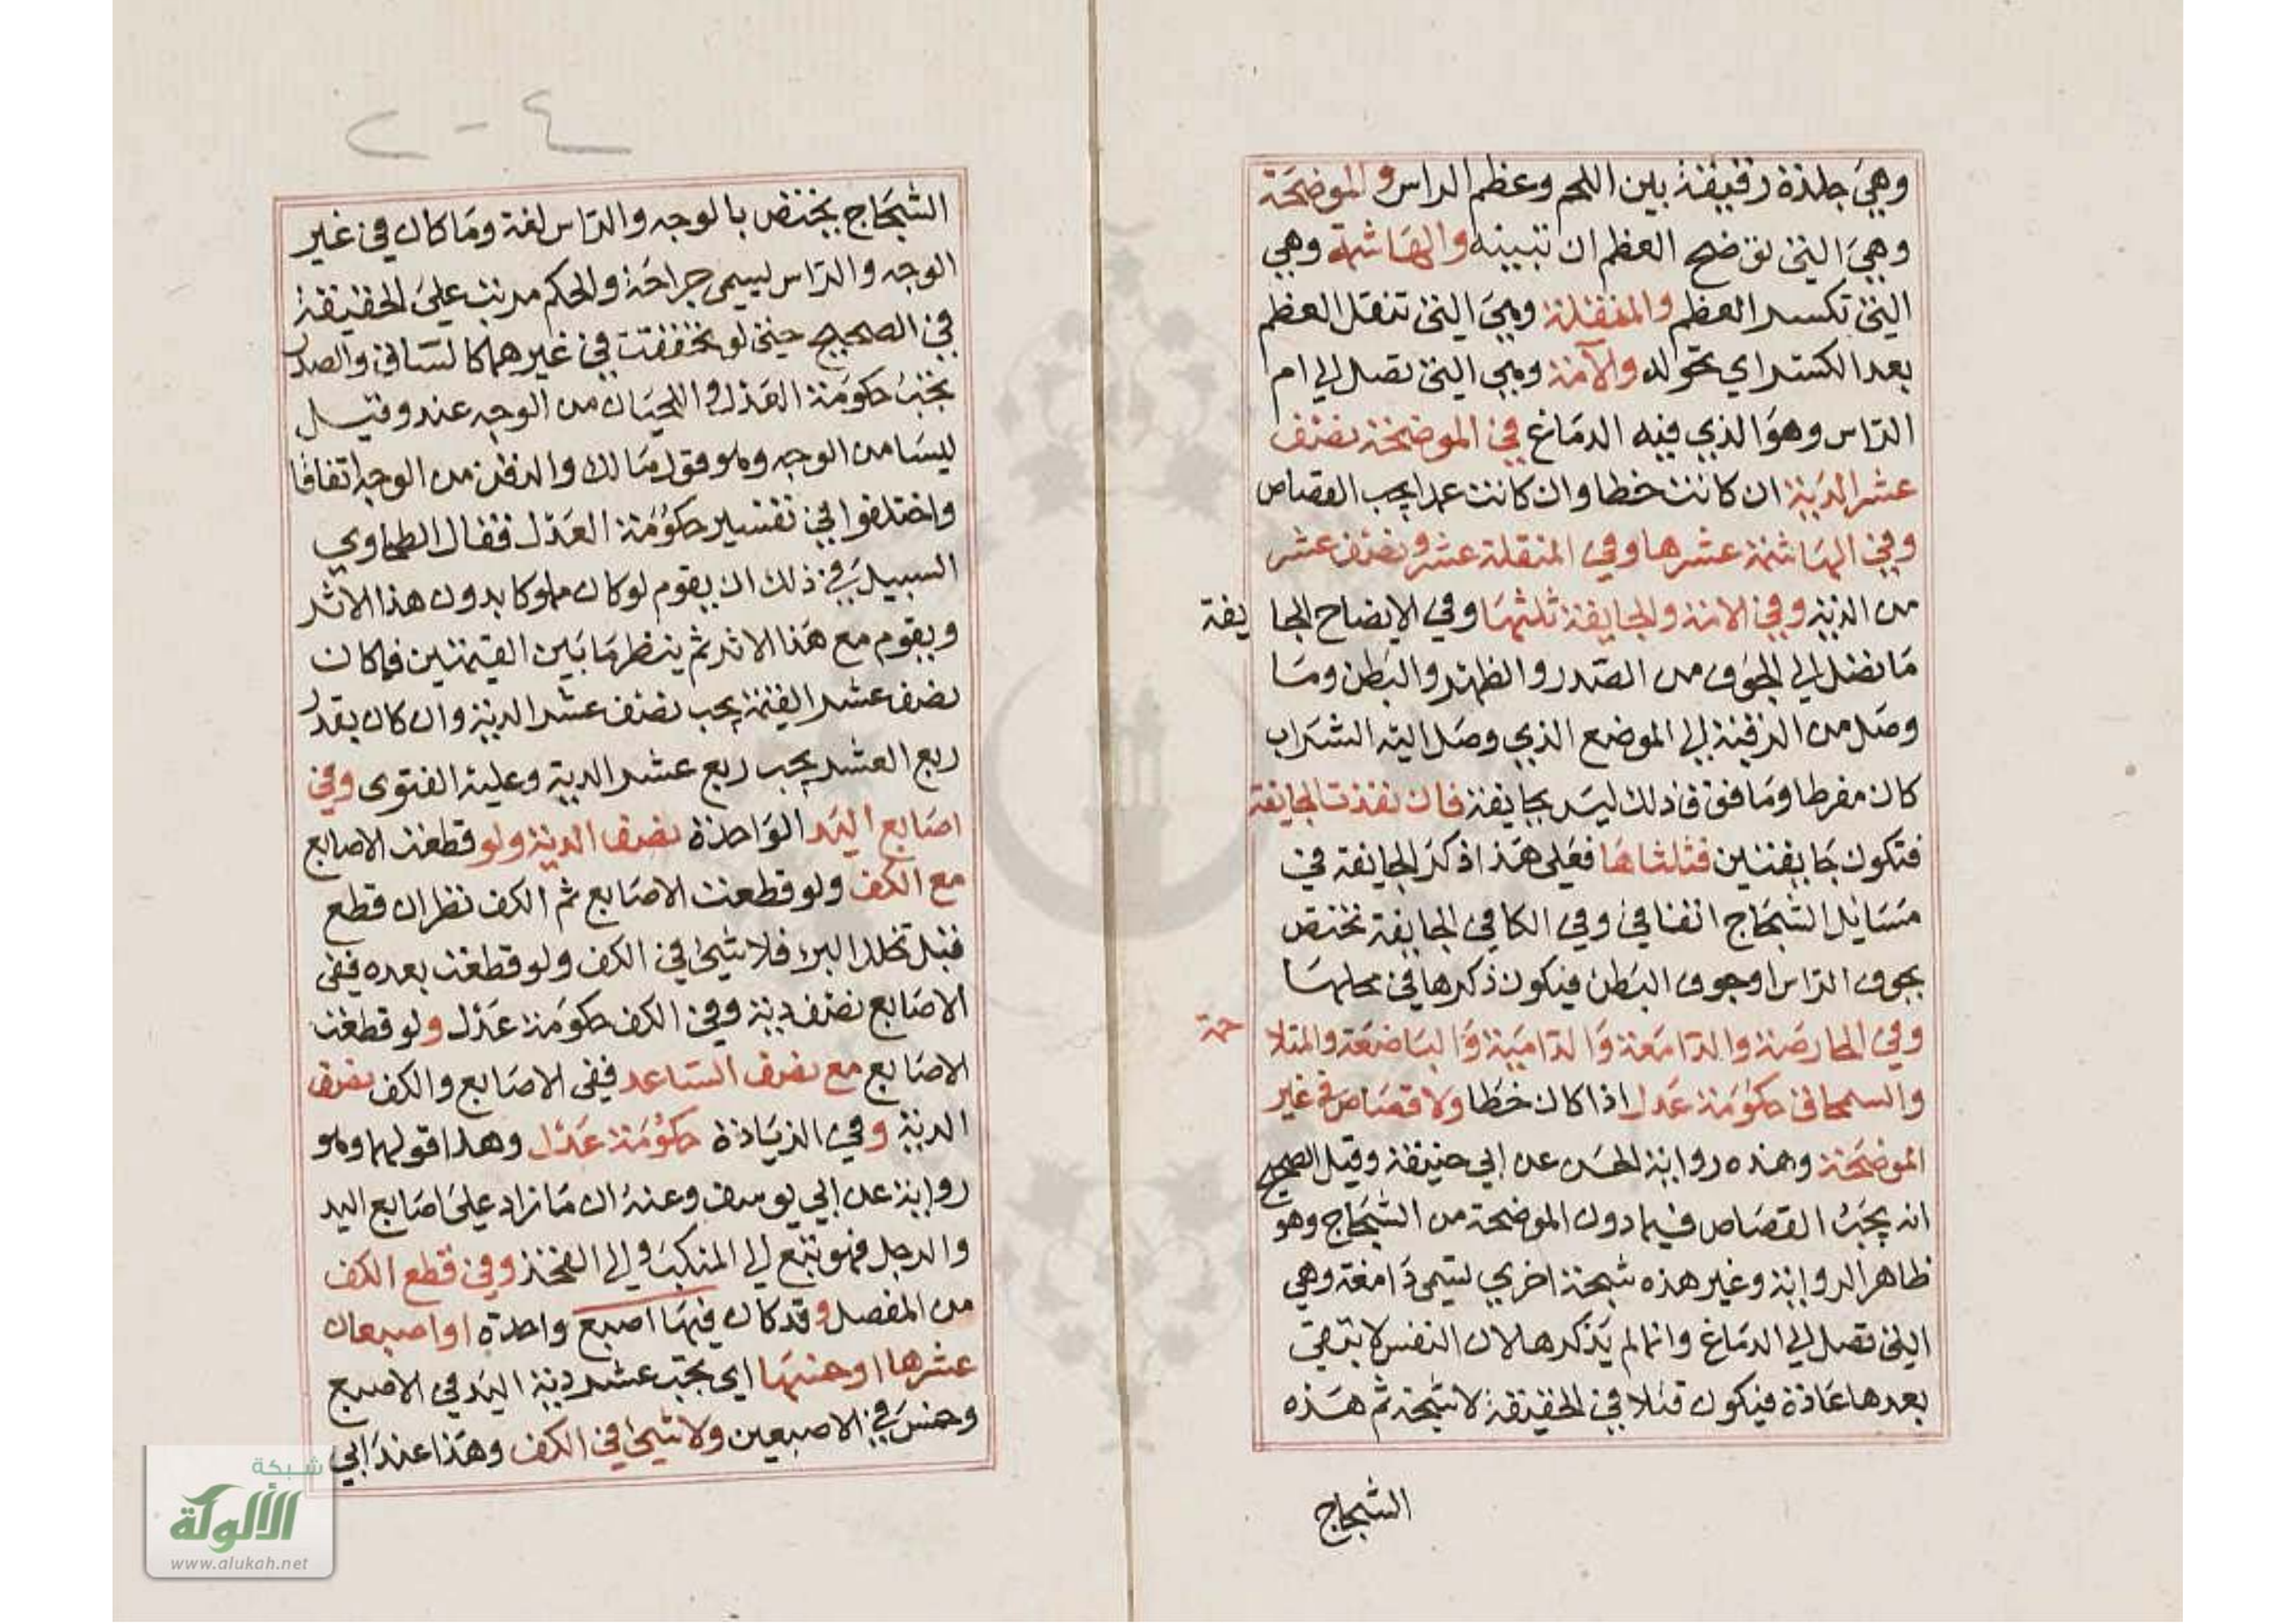 وهي جلدة رقيقة بين اللحم وعظم الراس والموضحة
وهي التي توضح العظم ان تبينه والهاشمة وهي
التي تكسر العظم والمنقلة وهي التي تنقل العظم
بعد الكسر اي تحوله والآمة وهي التي تصل الي ام
الراس وهو الذي فيه الدماغ في الموضحة نصف
عشر الدية ان كانت خطا وان كانت عمدا يجب القصاص
وفي الهاشمة عشرها وفي المنقلة عشر ونصف عشر
من الدية وفي الامة والجايفة ثلثها وفي الايضاح الجايفة
ما تصل الي الجوف من الصدر والظهر والبطن وما
وصل من الرقبة الي الموضع الذي وصل اليه الشراب
كان مفرطا وما فوق ذلك ليس بجايفة فان نفذت الجايفة
فتكون جايفتين فثلثاها فعلي هذا ذكر الجايفة في
مسايل الشجاج اتفاقي وفي الكافي الجايفة تختص
بجوف الراس او جوف البطن فيكون ذكرها في محلها
وفي الحارصة والدامعة والدامية والباضعة والمتلاحمة
والسمحاق حكومة عدل اذا كان خطا ولا قصاص في غير
الموضحة وهذه رواية الحسن عن ابي حنيفة وقيل الصحيح
انه يجب القصاص فيما دون الموضحة من الشجاج وهو
ظاهر الرواية وغير هذه شجة اخري تسمي دامغة وهي
التي تصل الي الدماغ وانما لم يذكرها لان النفس لا تبقي
بعدها عادة فيكون قتلا في الحقيقة لا شجة ثم هذه
الشجاج
٤ - ٢
الشجاج يختص بالوجه والراس لغة وما كان في غير
الوجه والراس يسمي جراحة والحكم مرتب علي الحقيقة
في الصحيح حتي لو تحققت في غيرهما كالساق والصدر
تجب حكومة العدل واللحيان من الوجه عند وقيل
ليسا من الوجه وهو قول مالك والذقن من الوجه اتفاقا
واختلفوا في تفسير حكومة العدل فقال الطحاوي
السبيل في ذلك ان يقوم لو كان مملوكا بدون هذا الاثر
ويقوم مع هذا الاثر ثم ينظر ما بين القيمتين فما كان
نصف عشر القيمة يجب نصف عشر الدية وان كان بقدر
ربع العشر يجب ربع عشر الدية وعليه الفتوي وفي
اصابع اليد الواحدة نصف الدية ولو قطعت الاصابع
مع الكف ولو قطعت الاصابع ثم الكف نظر ان قطع
قبل تخلل البرء فلا شيء في الكف ولو قطعت بعده ففي
الاصابع نصف دية وفي الكف حكومة عدل ولو قطعت
الاصابع مع نصف الساعد ففي الاصابع والكف نصف
الدية وفي الزيادة حكومة عدل وهذا قولهما وهو
رواية عن ابي يوسف وعنه ان ما زاد علي اصابع اليد
والرجل فهو تبع الي المنكب والي الفخذ وفي قطع الكف
من المفصل وقد كان فيها اصبع واحدة او اصبعان
عشرها او خمسها اي يجب عشر دية اليد في الاصبع
وخمس في الاصبعين ولا شيء في الكف وهذا عند ابي
شبكة
الألوكة
www.alukah.net